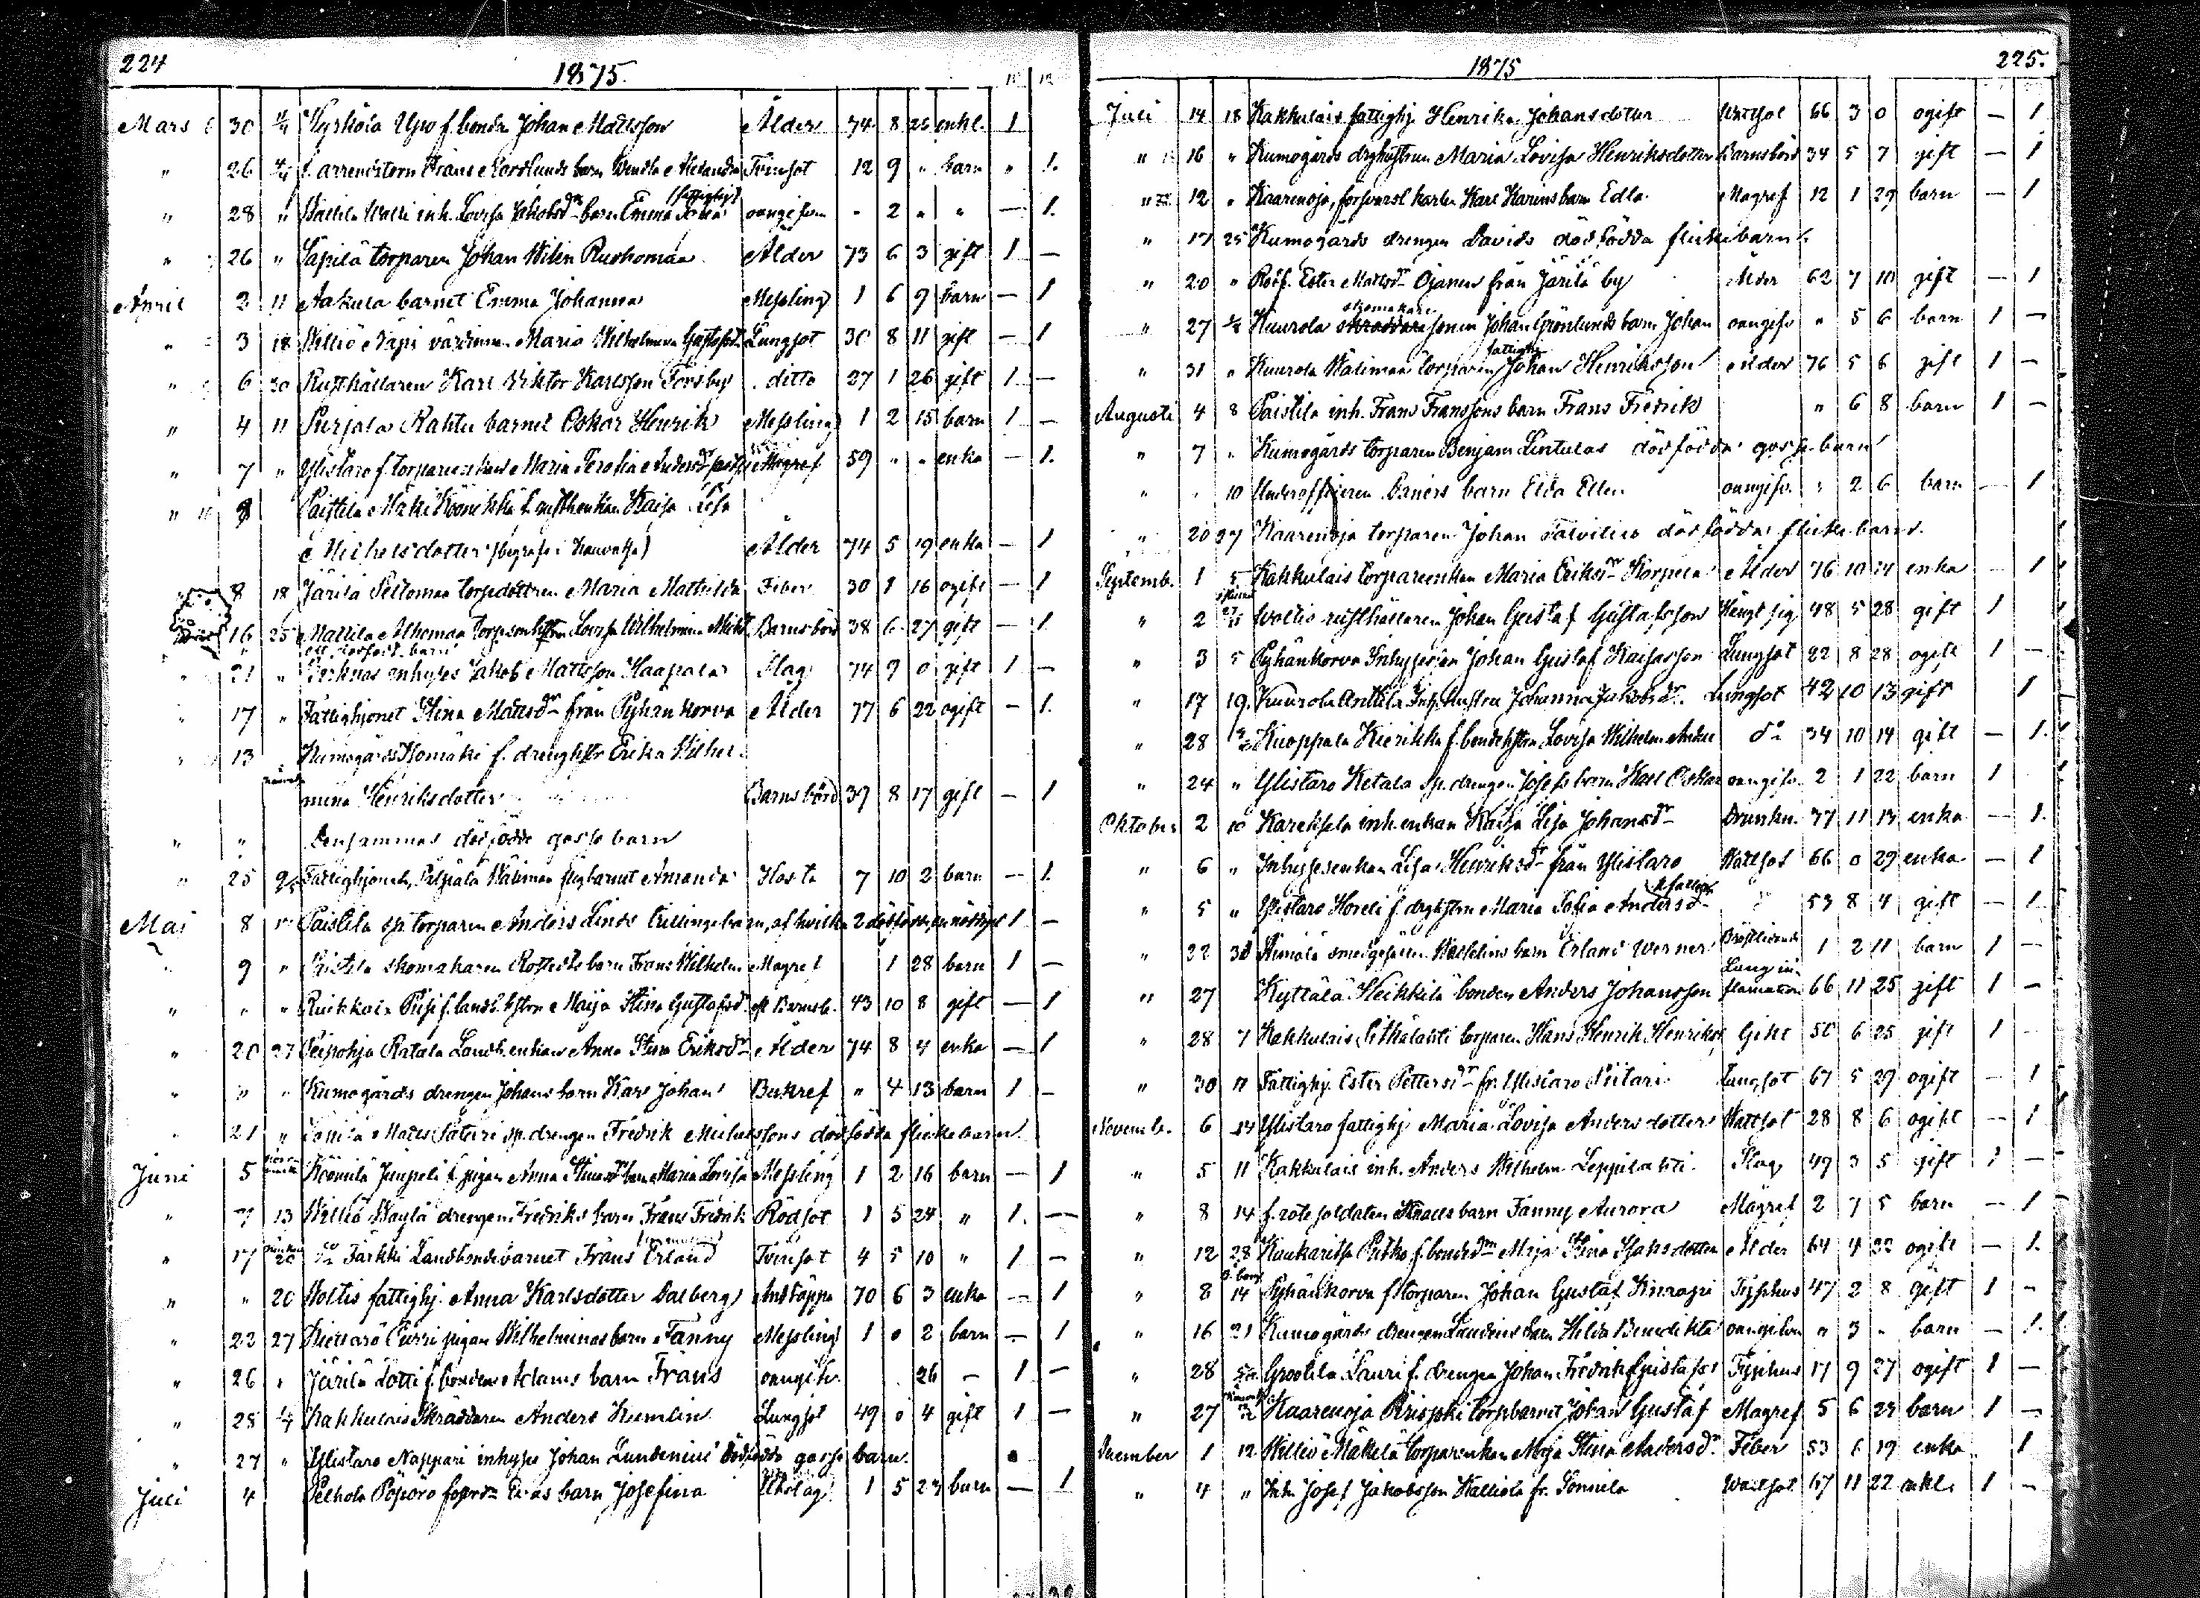 224
1875.
Mars 30 11/4 Kyrkölä Uso f. bonden Johan Mattsson Ålder 74 8 25 enkl. 1
" 26 4/4 f. arrendatorn Frans Nordlunds barn Wendla Alexandra Tvinsot 12 9 " barn " 1.
" 28 " inh. Lovisa Jakobsdr barn Emma (fattighj) oangifven - 2 " " — 1.
" 26 " Säpilä torparen Johan Wilen Ruohomaa Ålder 73 6 3 gift 1 —
April 2 11 Aakula barnet Emma Johanna Messling 1 6 9 barn — 1
" 3 18 Villiö Näpi värdinnan Maria Wilhelmina Gustafsd. Lungsot 30 8 11 gift — 1
" 6 30 Rusthållaren Karl Viktor Karlsson Forsby ditto 27 1 26 gift 1 —
" 4 11 Purjala Rahtu barnet Oskar Henrik Messling 1 2 15 barn 1 —
" 7 " Ylistaro f. torpareenkan Maria Serafia Andersdr Magref 59 " " enka — 1.
" 8 Paistila Mäki f. rusth.enkan Kajsa Lisa
Michelsdotter (begrafs i Kauvatsa) Ålder 74 5 19 enka — 1
" 8 18 Järilä torpedottren Maria Mathilda Feber 30 1 16 ogift — 1
16 25 Mattila Alhomaa Lovisa Wilhelmina Barnsbörd 38 6 27 gift — 1.
ett dödfödt barn
" 21 " inhyses Jakob Mattsson Haapala Slag 74 9 0 gift 1 —
" 17 " Fattighjonet Stina Mattsdr från Pyhänkorva Ålder 77 6 22 ogift — 1.
" 13 Kumogårds Isomäki f. dreng Erika Wilhel-
mina Henriksdotter Barnsbörd 39 8 17 gift — 1
" " Densammas dödfödde gosse barn
" 25 Fattighjonet, barnet Amanda Hosta 7 10 2 barn — 1.
Maj 8 " Paistila sp. torparen Anders Linds trillingebarn, af hvilka 2 dödfödda, en nöddöpt 1 —
" 9 " Paistila skomakaren barn Frans Wilhelm Magref 1 28 barn 1 —
" " " Ruskkala f. landb. hstru Maija Stina Gustafsd. Barnsb. 43 10 8 gift — 1
" 20 27 Peipohja Ratala Landb.enkan Anna Stina Eriksdr Ålder 74 8 4 enka — 1
" " " Kumogårds drengen Johans barn Karl Johan Bukref " 4 13 barn 1 —
" 21 " sp. drengen Fredrik Michelssons dödfödda flickebarn.
Juni 5 Köömilä Junpeli f. pigan Anna barn Maria Lovisa Messling 1 2 16 barn — 1
" 7 13 Villiö drengen Fredriks barn Frans Fredrik Rödsot 1 5 24 " 1. —
" 17 20 Järkki Landbondebarnet Frans Erland Tvinsot 4 5 10 " 1 —
" " 20 Woltis fattighj. Anna Karlsdotter Dalberg Andtäppa 70 6 3 enka — 1
" 23 27 pigan Wilhelminas barn Fanny Messling 1 0 2 barn — 1
" 26 " Järilä Lotti f. bonden Adams barn Frans oangifv. 26 — 1 —
" 28 4/7 Kakkulais Skräddaren Anders Kumlin Lungsot 49 0 4 gift 1 —
" 27 " Ylistaro Nappari inhyses Johan Lundenius dödfödda gosse barn.
Juli 4 Pelhola Pöpörö barn Josefina 1 5 23 barn — 1
1875
225.
Juli 14 18 Kakkulais fattighj. Henrika Johansdotter Wattsot 66 3 0 ogift — 1
" 16 " Kumogårds drghustrun Maria Lovisa Henriksdotter Barnsbörd 34 5 7 gift — 1
" 12 " Kaarenoja, försvarsl. karlen Karl Karins barn Edla Magref 12 1 29 barn — 1
" 17 25 Kumogårds drengen Davids dödfödda flickebarn.
" 20 " Rotf. Ester Mattsdr Ojanen från Järilä by Ålder 62 7 10 gift — 1
" 27 1/8 Kuurola skomakare sonen Johan Grönlunds barn Johan oangifv. " 5 6 barn 1 —
" 31 " Kuurola Wälimaa torparen fattighj. Johan Henriksson Ålder 76 5 6 gift 1 —
Augusti 4 8 Paistila inh. Frans Franssons barn Frans Fredrik " 6 8 barn 1 —
" 7 " Kumogårds torparen Benjam Lintulas dödfödda gosse-barn
" " 10 Underofficeren Daners barn Elda Ellen oangifv. " 2 6 barn — 1
" 20 27 Kaarenoja torparen Johan dödfödda flickebarn.
Septemb. 1 5 Kakkulais torpareenkan Maria Eriksdr Korpela Ålder 76 10 14 enka — 1
" 2 Woltis rusthållaren Johan Gustaf Gustafsson Hängt sig 48 5 28 gift 1
" 3 5 Pyhänkorva Inhysessen Johan Gustaf Kaisasson Lungsot 22 8 28 ogift 1 —
" 17 19. Kuurola Anttila Inh. hustru Johanna Jakobsdr. Lungsot 42 10 13 gift 1 —
" 28 Kuoppala Kierikka f. bondehstru Lovisa Wilhelm. Anders do 34 10 14 gift — 1.
" 24 " Ylistaro Ketala sp. drengen Josefs barn Karl Oskar oangifv. 2 1 22 barn 1
Oktober 2 10 Karehsela inh. enkan Kaisa Lisa Johansdr Drunkn. 77 11 13 enka — 1.
" 6 " Inhysesenkan Lisa Henriksdr från Ylistaro Wattsot 66 0 29 enka — 1
" 5 " Ylistaro f. drghstrun Maria Sofia Andersdr 53 8 4 gift — 1
" 22 31 smedgesällen barn Erland Werner Bröstlidande 1 2 11 barn 1 —
" 27 Kyttälä Heikkilä bonden Anders Johansson Lung in-flamation 66 11 25 gift 1 —
" 28 7 Kakkulais Pitkälahti torparen Hans Henrik Henrikss. Gikt 50 6 25 gift 1 —
" 30 " Fattighj. Ester Pettersdr fr. Ylistaro Piilari Lungsot 67 5 29 ogift — 1
Novemb. 6 14 Ylistaro fattighj. Maria Lovisa Andersdotter Wattsot 28 8 6 ogift — 1
" 5 11 Kakkulais inh. Anders Wilhelm Leppälahti Slag 49 3 5 gift 1 —
" 8 14 f. rote soldaten barn Fanny Aurora Magref 2 7 5 barn — 1
" 12 28 Kaukaritsa Pirko f. bondedr Maja Stina Isaksdotter Ålder 64 4 22 ogift — 1.
" 8 14 Pyhänkorva f. torparen Johan Gustaf Kinrapi Typhus 47 2 8 gift 1 —
" 16 21 Kumogårds drengen barn Hilda Benedikta oangifven " 3 " barn — 1.
" 28 Grootila Lauri f. drengen Johan Fredrik Gustafss. Typhus 17 9 27 ogift 1 —
" 27 Kaarenoja Krispki torpbarnet Johan Gustaf Magref 5 6 23 barn 1 —
December 1 12 Villiö Mäkelä torparenkan Maja Stina Andersdr Feber 53 6 19 enka 1
" 4 " Inh. Josef Jakobsson Kalliola fr. Sonnila Wattsot 67 11 22 enkl. 1 —